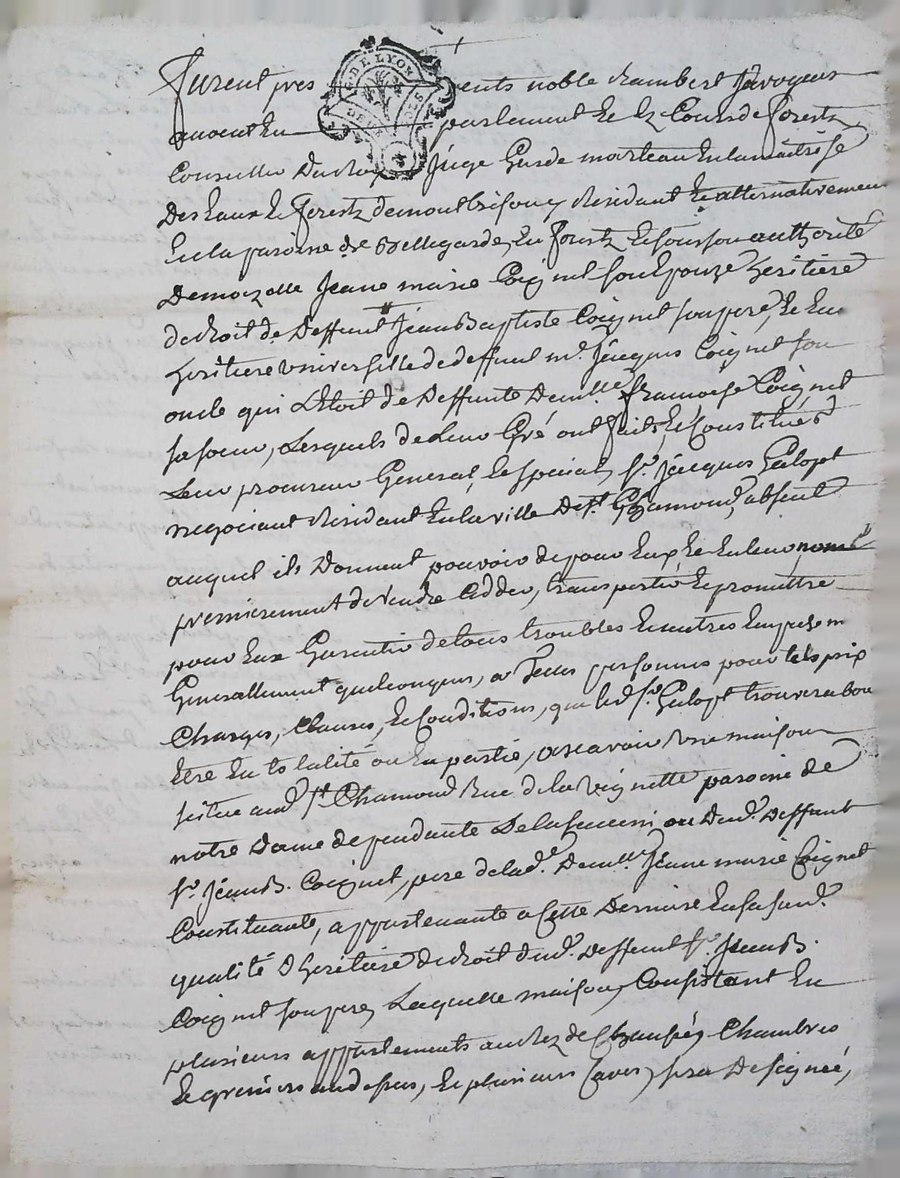 G. DE LYON
DEUX SOLS
furent pres ents noble Rambert Javogues
avocat En parlement Et Es Cours de forestz
Conseiller Du Roy Juge Garde marteau En la maitrise
Des Eaux Et forestz de montbrison, Residant Et alternativement
En la paroisse de Bellegarde, En forestz Et sous son authorité
Demoizelle Jeane marie Coignet son Epouze heritiere
de droit de Deffunt Jean Baptiste Coignet son pere, Et En
heritiere universelle de deffunt me. Jacques Coignet son
oncle qui L'Etoit de Deffunte Demlle. françoise Coignet
sa soeur, Lesquels de Leur Gré ont faits, Et Constitués
Leur procureur General, Et special, Sr. Jacques Galopet
negociant Residant En la ville De St. Chamond, absent
auquel ils Donnent pouvoir de pour Eux Et En leur noms
premierement de Vendre Cedder, transporter Et promettre
pour Eux Garentir de tous troubles Et autres
Generallement quelconques, a Telles personnes pour tels prix
Charges, Clauses, Et Conditions, que led. Sr. Galopet trouvera bon
Etre En totalité ou En partie, a scavoir une maison
scitue aud. St. Chamond Rue de la Vignette paroisse de
notre Dame dependante De la succession dud. Deffunt
Sr. Jean B. Coignet, pere de lad. Demlle. Jeane marie Coignet
Constituante, appartenante a Cette Derniere En sa susd.
qualité d'heritiere de droit dud. Deffunt Sr. Jean B.
Coignet son pere, Laquelle maison, Consistant En
plusieurs appartements au Rez de Chaussée, Chambres
Et greniers au dessus, Et plusieurs Caves, sera Designée,